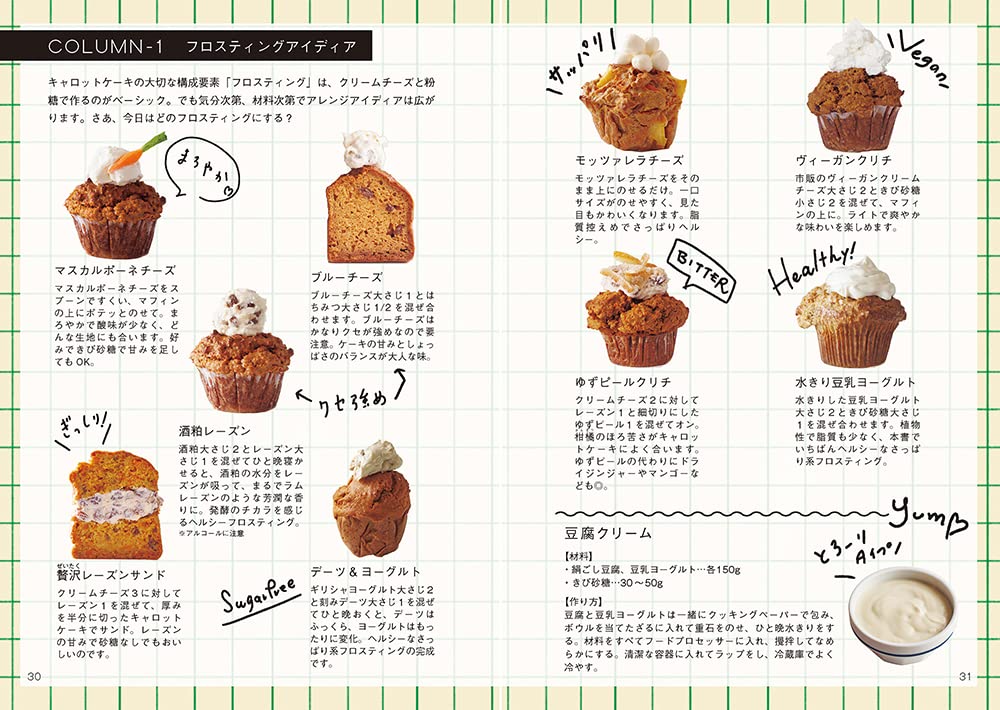 COLUMN-1 フロスティングアイディア
キャロットケーキの大切な構成要素「フロスティング」は、クリームチーズと粉
糖で作るのがベーシック。でも気分次第、材料次第でアレンジアイディアは広が
ります。さあ、今日はどのフロスティングにする？
まろやか
マスカルポーネチーズ
マスカルポーネチーズをス
プーンですくい、マフィン
の上にボテッとのせて。ま
ろやかで酸味が少なく、ど
んな生地にも合います。好
みできび砂糖で甘みを足し
てもOK。
ブルーチーズ
ブルーチーズ大さじ1とは
ちみつ大さじ1/2を混ぜ合
わせます。ブルーチーズは
かなりクセが強めなので要
注意。ケーキの甘みとしょっ
ぱさのバランスが大人な味。
クセ強め
酒粕レーズン
酒粕大さじ2とレーズン大
さじ1を混ぜてひと晩寝か
せると、酒粕の水分をレー
ズンが吸って、まるでラム
レーズンのような芳潤な香
りに。発酵のチカラを感じ
るヘルシーフロスティング。
※アルコールに注意
ぎっしり!
ぜいたく
贅沢レーズンサンド
クリームチーズ3に対して
レーズン1を混ぜて、厚み
を半分に切ったキャロット
ケーキでサンド。レーズン
の甘みで砂糖なしでもおい
しいのです。
Sugarfree
デーツ＆ヨーグルト
ギリシャヨーグルト大さじ2
と刻みデーツ大さじ1を混ぜ
てひと晩おくと、デーツは
ふっくら、ヨーグルトはもっ
たりに変化。ヘルシーなさっ
ぱり系フロスティングの完成
です。
30
サッパリ!
モッツァレラチーズ
モッツァレラチーズをその
まま上にのせるだけ。一口
サイズがのせやすく、見た
目もかわいくなります。脂
質控えめでさっぱりヘル
シー。
Vegan
ヴィーガンクリチ
市販のヴィーガンクリーム
チーズ大さじ2ときび砂糖
小さじ2を混ぜて、マフィ
ンの上に。ライトで爽やか
な味わいを楽しめます。
BITTER
ゆずピールクリチ
クリームチーズ2に対して
レーズン1と細切りにした
ゆずピール1を混ぜてオン。
かんきつ
柑橘のほろ苦さがキャロッ
トケーキによく合います。
ゆずピールの代わりにドラ
イジンジャーやマンゴーな
ども◎。
Healthy!
水きり豆乳ヨーグルト
水きりした豆乳ヨーグルト
大さじ2ときび砂糖大さじ
1を混ぜ合わせます。植物
性で脂質も少なく、本書で
いちばんヘルシーなさっぱ
り系フロスティング。
yum
豆腐クリーム
【材料】
・絹ごし豆腐、豆乳ヨーグルト…各150g
・きび砂糖…30〜50g
【作り方】
豆腐と豆乳ヨーグルトは一緒にクッキングペーパーで包み、
ボウルを当てたざるに入れて重石をのせ、ひと晩水きりをす
る。材料をすべてフードプロセッサーに入れ、攪拌してなめ
らかにする。清潔な容器に入れてラップをし、冷蔵庫でよく
冷やす。
とろーり
31